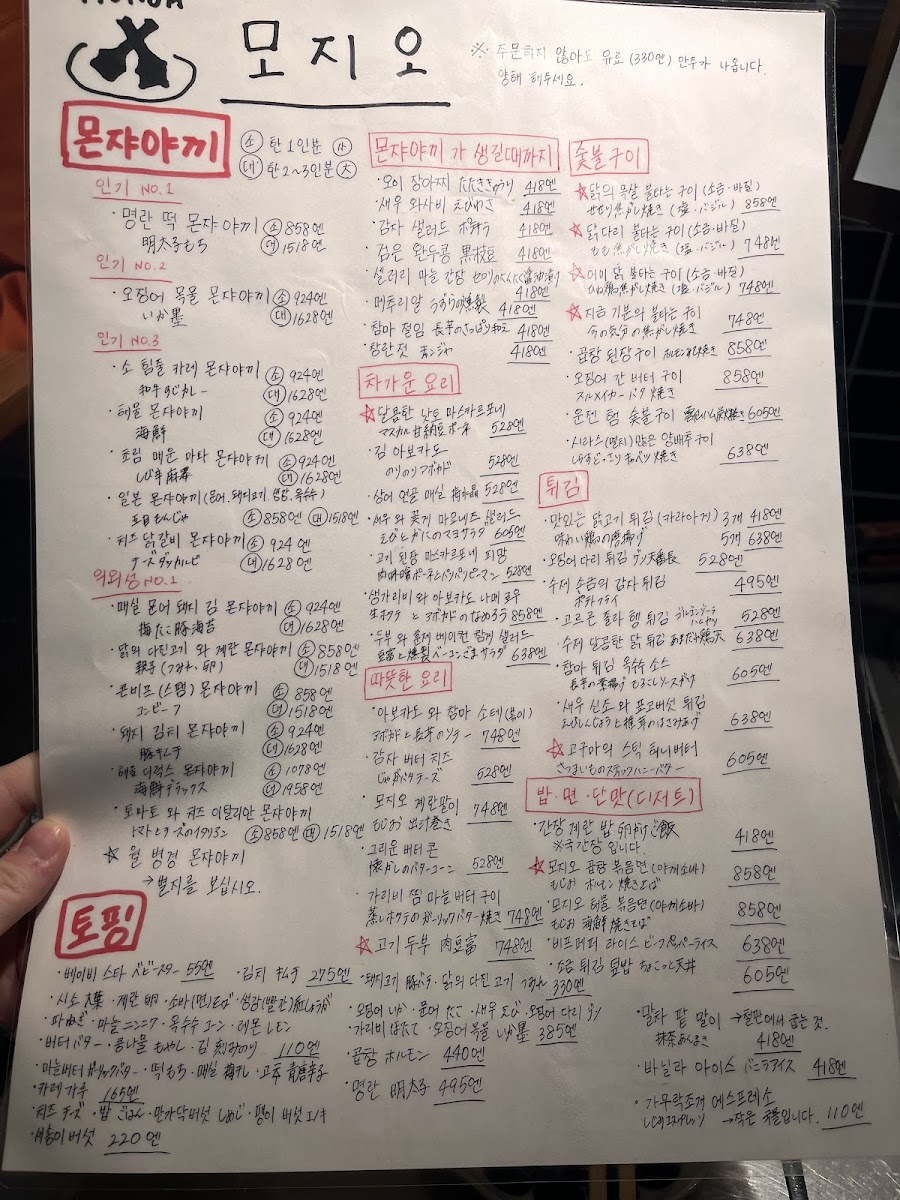 모지오
※ 주문하지 않아도 유료(330엔) 만두가 나옵니다.
양해 해주세요.
몬쟈야끼
소 한 1인분 小
대 한 2~3인분 大
인기 NO.1
·명란 떡 몬쟈야끼 소 858엔
明太子もち 대 1518엔
인기 NO.2
·오징어 먹물 몬쟈야끼 소 924엔
いか墨 대 1628엔
인기 NO.3
·소 힘줄 카레 몬쟈야끼 소 924엔
和牛すじカレー 대 1628엔
·해물 몬쟈야끼 소 924엔
海鮮 대 1628엔
매운 마파 몬쟈야끼 소 924엔
しび辛麻婆 대 1628엔
·일본 몬쟈야끼(문어.돼지고기.명란.옥수수)
五目もんじゃ 소 858엔 대 1518엔
·치즈 닭갈비 몬쟈야끼 소 924엔
チーズダッカルビ 대 1628엔
의외성 NO.1
·매실 문어 돼지 김 몬쟈야끼 소 924엔
梅たこ豚海苔 대 1628엔
·닭의 다진고기 와 계란 몬쟈야끼 소 858엔
親子(つくね、卵) 대 1518엔
·콘비프(스팸) 몬쟈야끼 소 858엔
コンビーフ 대 1518엔
·돼지 김치 몬쟈야끼 소 924엔
豚キムチ 대 1628엔
·해물 디럭스 몬쟈야끼 소 1078엔
海鮮デラックス 대 1958엔
·토마토 와 치즈 이탈리안 몬쟈야끼
トマトとチーズのイタリアン 소 858엔 대 1518엔
☆ 월 변경 몬쟈야끼
→별지를 보십시오.
토핑
·베이비 스타 ベビースター 55엔 ·김치 キムチ 275엔
·시소 大葉 ·계란 卵 ·소바(면)そば ·생강(빨간)紅しょうが
·파 ねぎ ·마늘 ニンニク ·옥수수 コーン ·레몬 レモン
·버터 バター ·콩나물 もやし ·김 刻みのり 110엔
·마늘버터 ガーリックバター ·떡 もち ·매실 梅干し ·고추 青唐辛子
·카레 가루 165엔
·치즈 チーズ ·밥 ごはん ·만가닥버섯 しめじ ·팽이 버섯 エノキ
버섯 220엔
몬쟈야끼 가 생길때까지
·오이 장아찌 たたききゅうり 418엔
·새우 와사비 えびわさ 418엔
·감자 샐러드 ポテサラ 418엔
·검은 완두콩 黒枝豆 418엔
·샐러리 마늘 간장 セロリのにんにく醤油漬け
418엔
·메추리알 うずらの燻製 418엔
·참마 절임 長芋のさっぱり和え 418엔
·창란젓 チャンジャ 418엔
차가운 요리
☆달콤한 낫토 마스카르포네
マスカル甘納豆ポーネ 528엔
·김 아보카도
のりのりアボカド 528엔
·상어 연골 매실 梅水晶 528엔
·새우 와 꽃게 마요네즈 샐러드
えびとかにのマヨサラダ 605엔
·고기 된장 마스카르포네 피망
肉味噌ポーネとパリパリピーマン 528엔
·생가리비 와 아보카도 나메로우
生ホタテとアボカドのなめろう 858엔
·두부 와 훈제 베이컨 참깨 샐러드
豆腐と燻製ベーコンごまサラダ 638엔
따뜻한 요리
·아보카도 와 참마 소테(볶이)
アボカドと長芋のソテー 748엔
·감자 버터 치즈
じゃがバタチーズ 528엔
·모지오 계란말이
もじお出汁巻き 748엔
·그리운 버터 콘
懐かしのバターコーン 528엔
·가리비 찜 마늘 버터 구이
蒸しホタテのガーリックバター焼き 748엔
☆고기 두부 肉豆富 748엔
·돼지고기 豚バラ ·닭의 다진 고기 つくね
330엔
·오징어 いか ·문어 たこ ·새우 えび ·오징어 다리 ゲソ
·가리비 ほたて ·오징어 먹물 いか墨 385엔
·곱창 ホルモン 440엔
·명란 明太子 495엔
숯불구이
☆닭의 목살 불타는 구이 (소금·바질)
せせり焦がし焼き(塩·バジル) 858엔
☆닭다리 불타는 구이 (소금·바질)
もも焦がし焼き(塩·バジル) 748엔
☆어미 닭 불타는 구이 (소금·바질)
ひね鶏の焦がし焼き(塩·バジル) 748엔
☆지금 기분의 불타는 구이
今の気分の焦がし焼き 748엔
·곱창 된장구이 ホルモン味噌焼き 858엔
·오징어 간 버터 구이
スルメイカーバタ焼き 858엔
·훈제 햄 숯불구이 605엔
·시라스(멸치)많은 양배추구이
キャベツ焼き 638엔
튀김
·맛있는 닭고기 튀김 (카라아게) 3개 418엔
味わい鶏の唐揚げ 5개 638엔
·오징어 다리 튀김 ゲソ天番長 528엔
·수제 소금의 감자 튀김
ポテトフライ 495엔
·고르곤 졸라 햄 튀김 ゴルゴンゾーラハムカツ 528엔
·수제 달콤한 닭 튀김 鶏天 638엔
·참마 튀김 옥수수 소스
長芋の素揚げ もろこしソースがけ 605엔
·새우 신소 와 표고버섯 튀김
えびしんじょうと椎茸のはさみあげ 638엔
☆고구마의 스틱 허니버터
さつまいものスティックハニーバター 605엔
밥·면·단맛(디저트)
·간장 계란 밥 卵かけご飯
※국간장 입니다. 418엔
☆모지오 곱창 볶음면(야끼소바)
もじお ホルモン焼きそば 858엔
·모지오 해물 볶음면(야끼소바)
もじお 海鮮焼きそば 858엔
·비프페퍼 라이스 ビーフペッパーライス 638엔
·소금 튀김 덮밥 ちょこっと天丼 605엔
·말차 팥 말이 →철판에서 굽는 것.
抹茶あんまき 418엔
·바닐라 아이스 バニラアイス 418엔
·가무락조개 에스프레소
しじみエスプレッソ →작은 국물입니다. 110엔